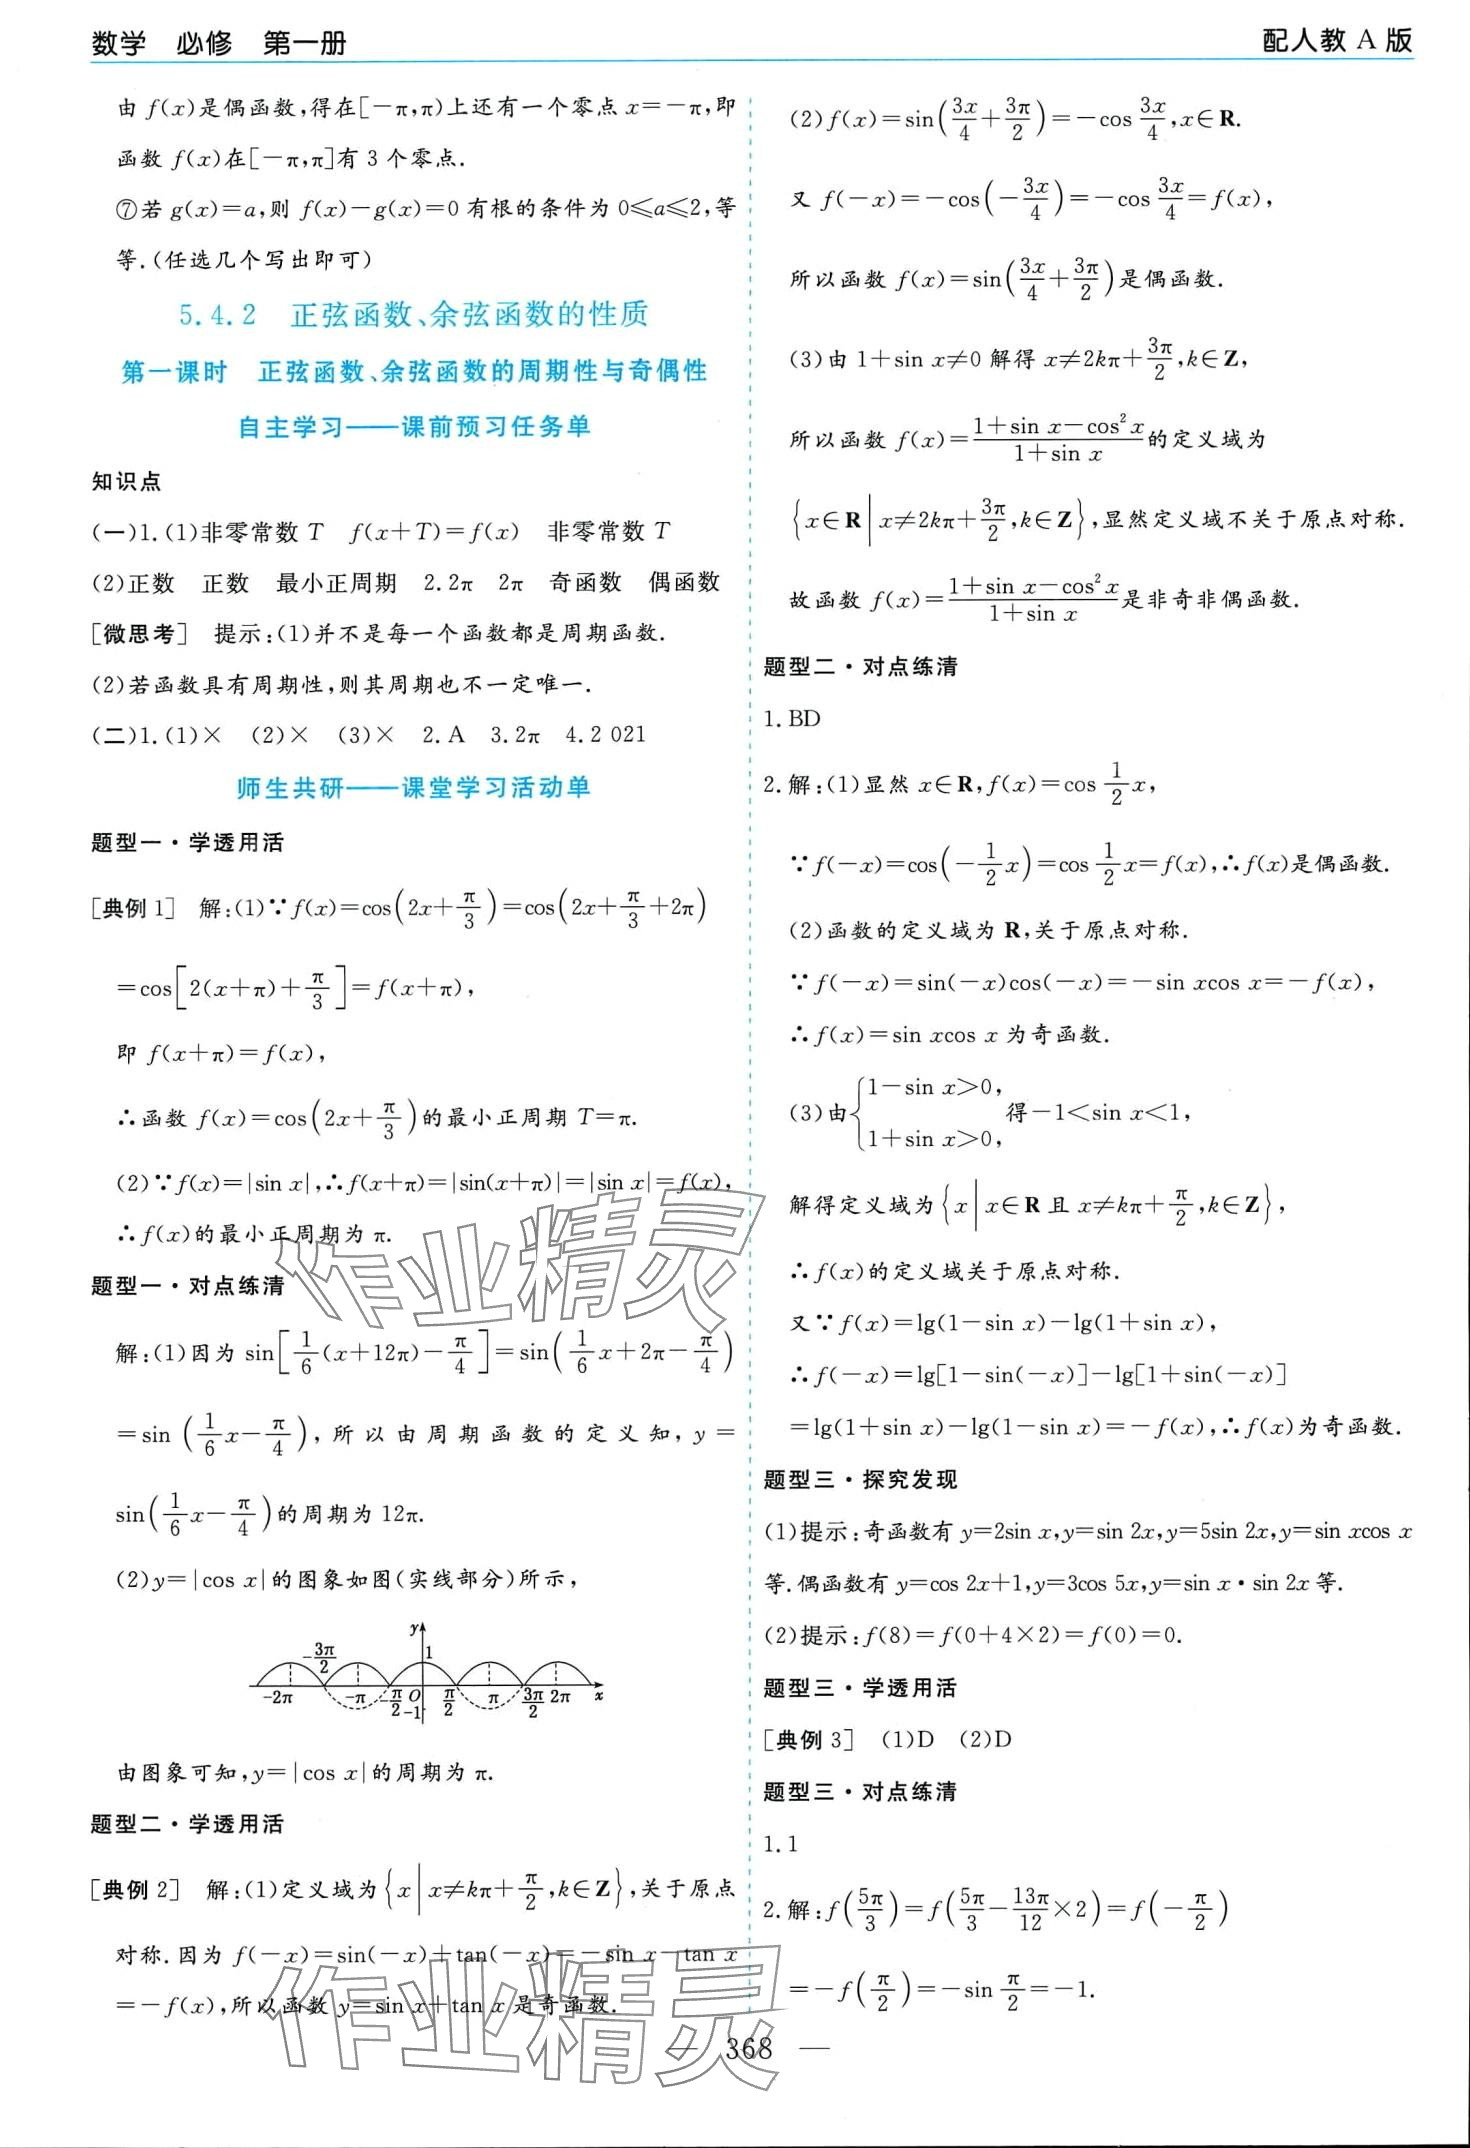 数学 必修 第一册
配人教 A 版
由 f(x)是偶函数,得在[-π,π)上还有一个零点 x=-π,即
函数 f(x)在[-π,π]有 3 个零点.
⑦若 g(x)=a,则 f(x)-g(x)=0 有根的条件为 0≤a≤2,等
等.(任选几个写出即可)
5.4.2 正弦函数、余弦函数的性质
第一课时 正弦函数、余弦函数的周期性与奇偶性
自主学习——课前预习任务单
知识点
(一)1.(1)非零常数 T f(x+T)=f(x) 非零常数 T
(2)正数 正数 最小正周期 2.2π 2π 奇函数 偶函数
[微思考] 提示:(1)并不是每一个函数都是周期函数.
(2)若函数具有周期性,则其周期也不一定唯一.
(二)1.(1)× (2)× (3)× 2.A 3.2π 4.2 021
师生共研——课堂学习活动单
题型一·学透用活
[典例 1] 解:(1)∵f(x)=cos(2x+π/3)=cos(2x+π/3+2π)
=cos[2(x+π)+π/3]=f(x+π),
即 f(x+π)=f(x),
∴函数 f(x)=cos(2x+π/3)的最小正周期 T=π.
(2)∵f(x)=|sin x|,∴f(x+π)=|sin(x+π)|=|sin x|=f(x),
∴f(x)的最小正周期为 π.
题型一·对点练清
解:(1)因为 sin[1/6(x+12π)-π/4]=sin(1/6x+2π-π/4)
=sin(1/6x-π/4),所以由周期函数的定义知,y=
sin(1/6x-π/4)的周期为 12π.
(2)y=|cos x|的图象如图(实线部分)所示,
y
-3π/2 1
-2π -π -π/2 O -1 π/2 π 3π/2 2π x
由图象可知,y=|cos x|的周期为 π.
题型二·学透用活
[典例 2] 解:(1)定义域为{x|x≠kπ+π/2,k∈Z},关于原点
对称.因为 f(-x)=sin(-x)+tan(-x)=-sin x-tan x
=-f(x),所以函数 y=sin x+tan x 是奇函数.
(2)f(x)=sin(3x/4+3π/2)=-cos 3x/4,x∈R.
又 f(-x)=-cos(-3x/4)=-cos 3x/4=f(x),
所以函数 f(x)=sin(3x/4+3π/2)是偶函数.
(3)由 1+sin x≠0 解得 x≠2kπ+3π/2,k∈Z,
所以函数 f(x)=(1+sin x-cos²x)/(1+sin x)的定义域为
{x∈R|x≠2kπ+3π/2,k∈Z},显然定义域不关于原点对称.
故函数 f(x)=(1+sin x-cos²x)/(1+sin x)是非奇非偶函数.
题型二·对点练清
1.BD
2.解:(1)显然 x∈R,f(x)=cos 1/2x,
∵f(-x)=cos(-1/2x)=cos 1/2x=f(x),∴f(x)是偶函数.
(2)函数的定义域为 R,关于原点对称.
∵f(-x)=sin(-x)cos(-x)=-sin xcos x=-f(x),
∴f(x)=sin xcos x 为奇函数.
(3)由{1-sin x>0, 1+sin x>0, 得-1<sin x<1,
解得定义域为{x|x∈R 且 x≠kπ+π/2,k∈Z},
∴f(x)的定义域关于原点对称.
又∵f(x)=lg(1-sin x)-lg(1+sin x),
∴f(-x)=lg[1-sin(-x)]-lg[1+sin(-x)]
=lg(1+sin x)-lg(1-sin x)=-f(x),∴f(x)为奇函数.
题型三·探究发现
(1)提示:奇函数有 y=2sin x,y=sin 2x,y=5sin 2x,y=sin xcos x
等.偶函数有 y=cos 2x+1,y=3cos 5x,y=sin x·sin 2x等.
(2)提示:f(8)=f(0+4×2)=f(0)=0.
题型三·学透用活
[典例 3] (1)D (2)D
题型三·对点练清
1.1
2.解:f(5π/3)=f(5π/3-13π/12×2)=f(-π/2)
=-f(π/2)=-sin π/2=-1.
— 368 —
作业精灵
作业精灵